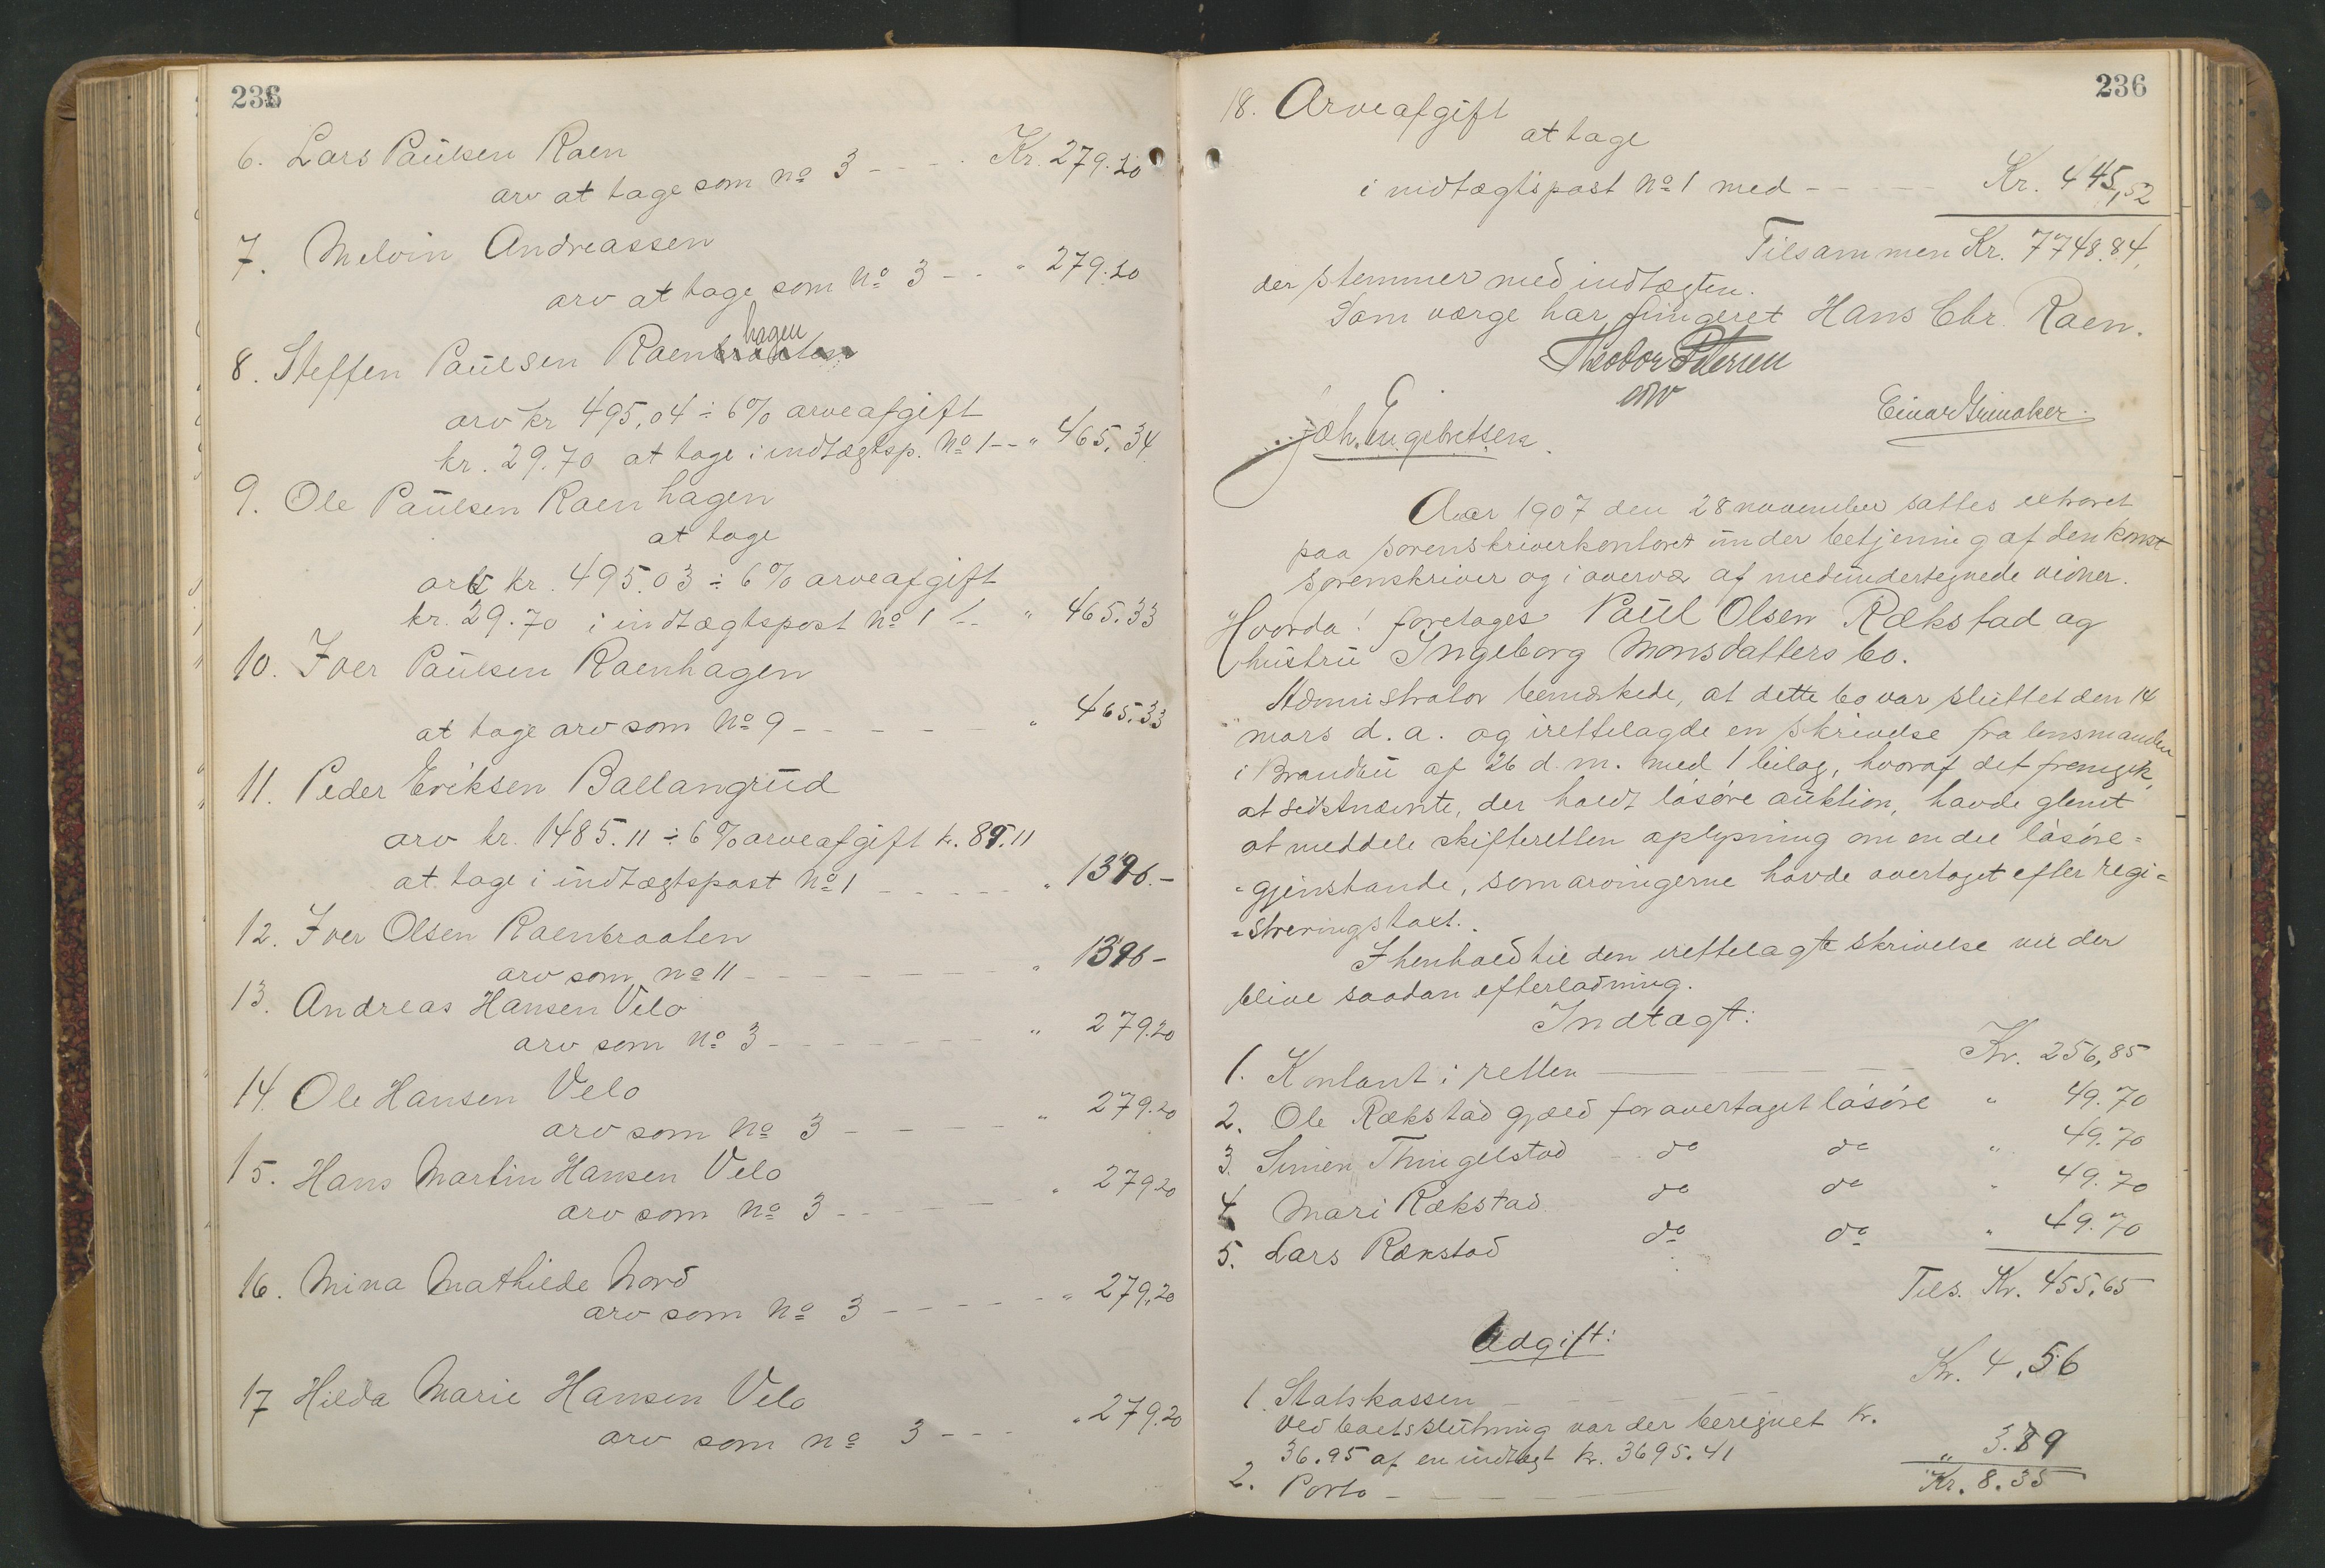 236
6. Lars Paulsen Raen
arv at tage som No 3 - - - Kr. 279.20
7. Melvin Andreassen
arv at tage som No 3 - - " 279.20
hagen
8. Steffen Paulsen Raenbraaten
arv kr 495,04 ÷ 6% arveafgift
kr. 29.70 at tage i indtægtsp. No 1 - - " 465.34
9. Ole Paulsen Raenhagen
at tage
arv kr. 495.03 ÷ 6% arveafgift
kr. 29.70 i indtægtspost No 1 - - " 465.33
10. Iver Paulsen Raenhagen
at tage arv som No 9 - - - - - " 465.33
11. Peder Eriksen Ballangrud
arv kr. 1485.11 ÷ 6% arveafgift k. 89.11
at tage i indtægtspost No 1 - - - - - " 1396.-
12. Iver Olsen Raenbraaten
arv som No 11 - - - - - - - " 1396-
13. Andreas Hansen Velo
arv som No 3 - - - - - - - " 279.20
14. Ole Hansen Velo
arv som No 3 - - - - - " 279.20
15. Hans Martin Hansen Velo
arv som No 3 - - - - - " 279.20
16. Mina Mathilde Nord
arv som No 3 - - - - - " 279,20
17 Hilda Marie Hansen Velo
arv som No 3 - - - " 279.20
236
18. Arveafgift
at tage
i indtægtspost No 1 med - - - - Kr. 445,52
Tilsammen Kr. 7748.84.
der stemmer med indtægten.
Som værge har fungeret Hans Chr. Raen.
Theodor Petersen
Joh. Engebretsen.
Aar 1907 den 28 november sattes extraret
paa sorenskriverkontoret under betjening af den konst
sorenskriver og i overvær af medundertegnede vidner.
Hvorda! foretages Paul Olsen Rækstad og
hustru Ingeborg Monsdatters bo.
Administrator bemærkede, at dette bo var sluttet den 14
mars d. a. og irettelagde en skrivelse fra lensmanden
i Brandbu af 26 d. m. med 1 bilag, hvoraf det fremgik,
at sidstnævnte, der holdt løsøre auktion, havde glemt
at meddele skifteretten oplysning om en del løsøre=
=gjenstande, som arvingerne havde overtaget efter regi=
=streringstaxt.
I henhold til den irettelagte skrivelse vil der
blive saadan efterlodning.
Indtægt:
1. Kontant i retten - - - - - Kr. 256,85
2. Ole Rækstad gjæld for overtaget løsøre " 49.70
3. Simen Thingelstad do do " 49.70
4 Mari Rækstad do do " 49.70
5. Lars Rækstad do do " 49.70
Tils. Kr. 455,65
Udgift:
1. Statskassen - - - - - Kr. 4.56
ved boets slutning var der beregnet kr.
36.95 af en indtægt kr. 3695.41
2. Porto - - - - - " 3.79
Kr. 8.35